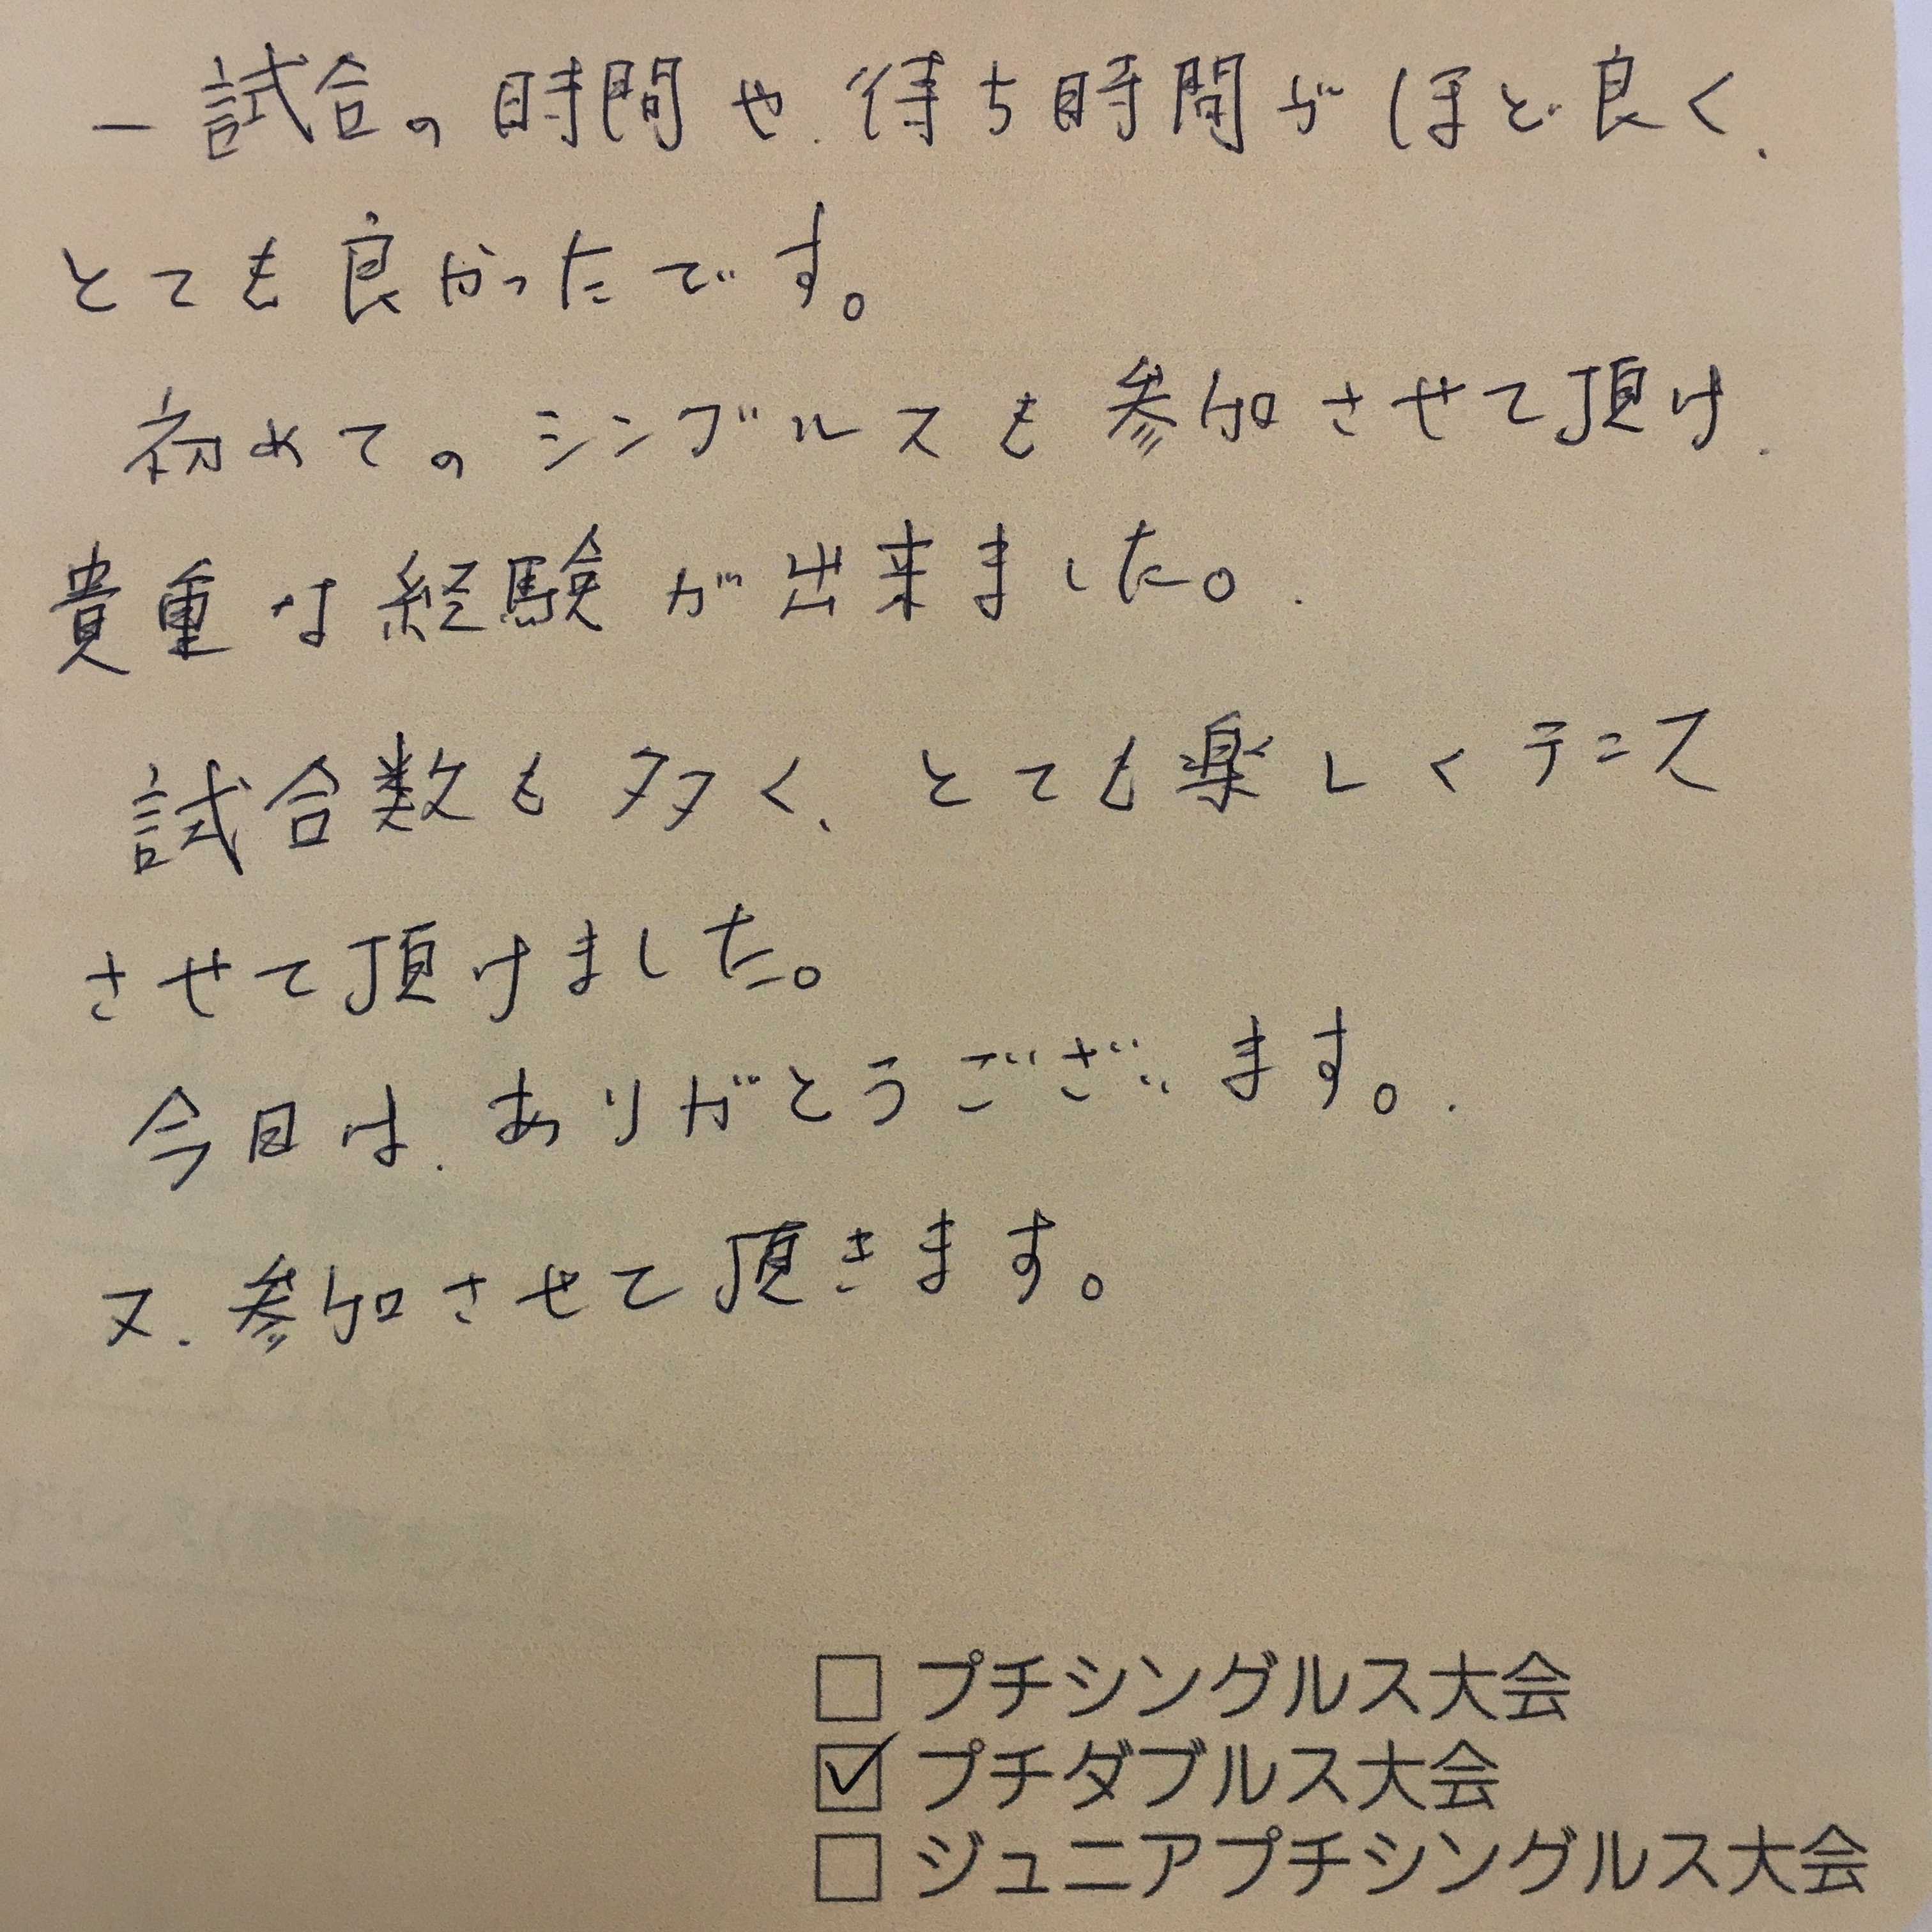 一試合の時間や、待ち時間がほど良く、
とても良かったです。
初めてのシングルスも参加させて頂け、
貴重な経験が出来ました。
試合数も多く、とても楽しくテニス
させて頂けました。
今日は、ありがとうございます。
又、参加させて頂きます。
□ プチシングルス大会
☑ プチダブルス大会
□ ジュニアプチシングルス大会